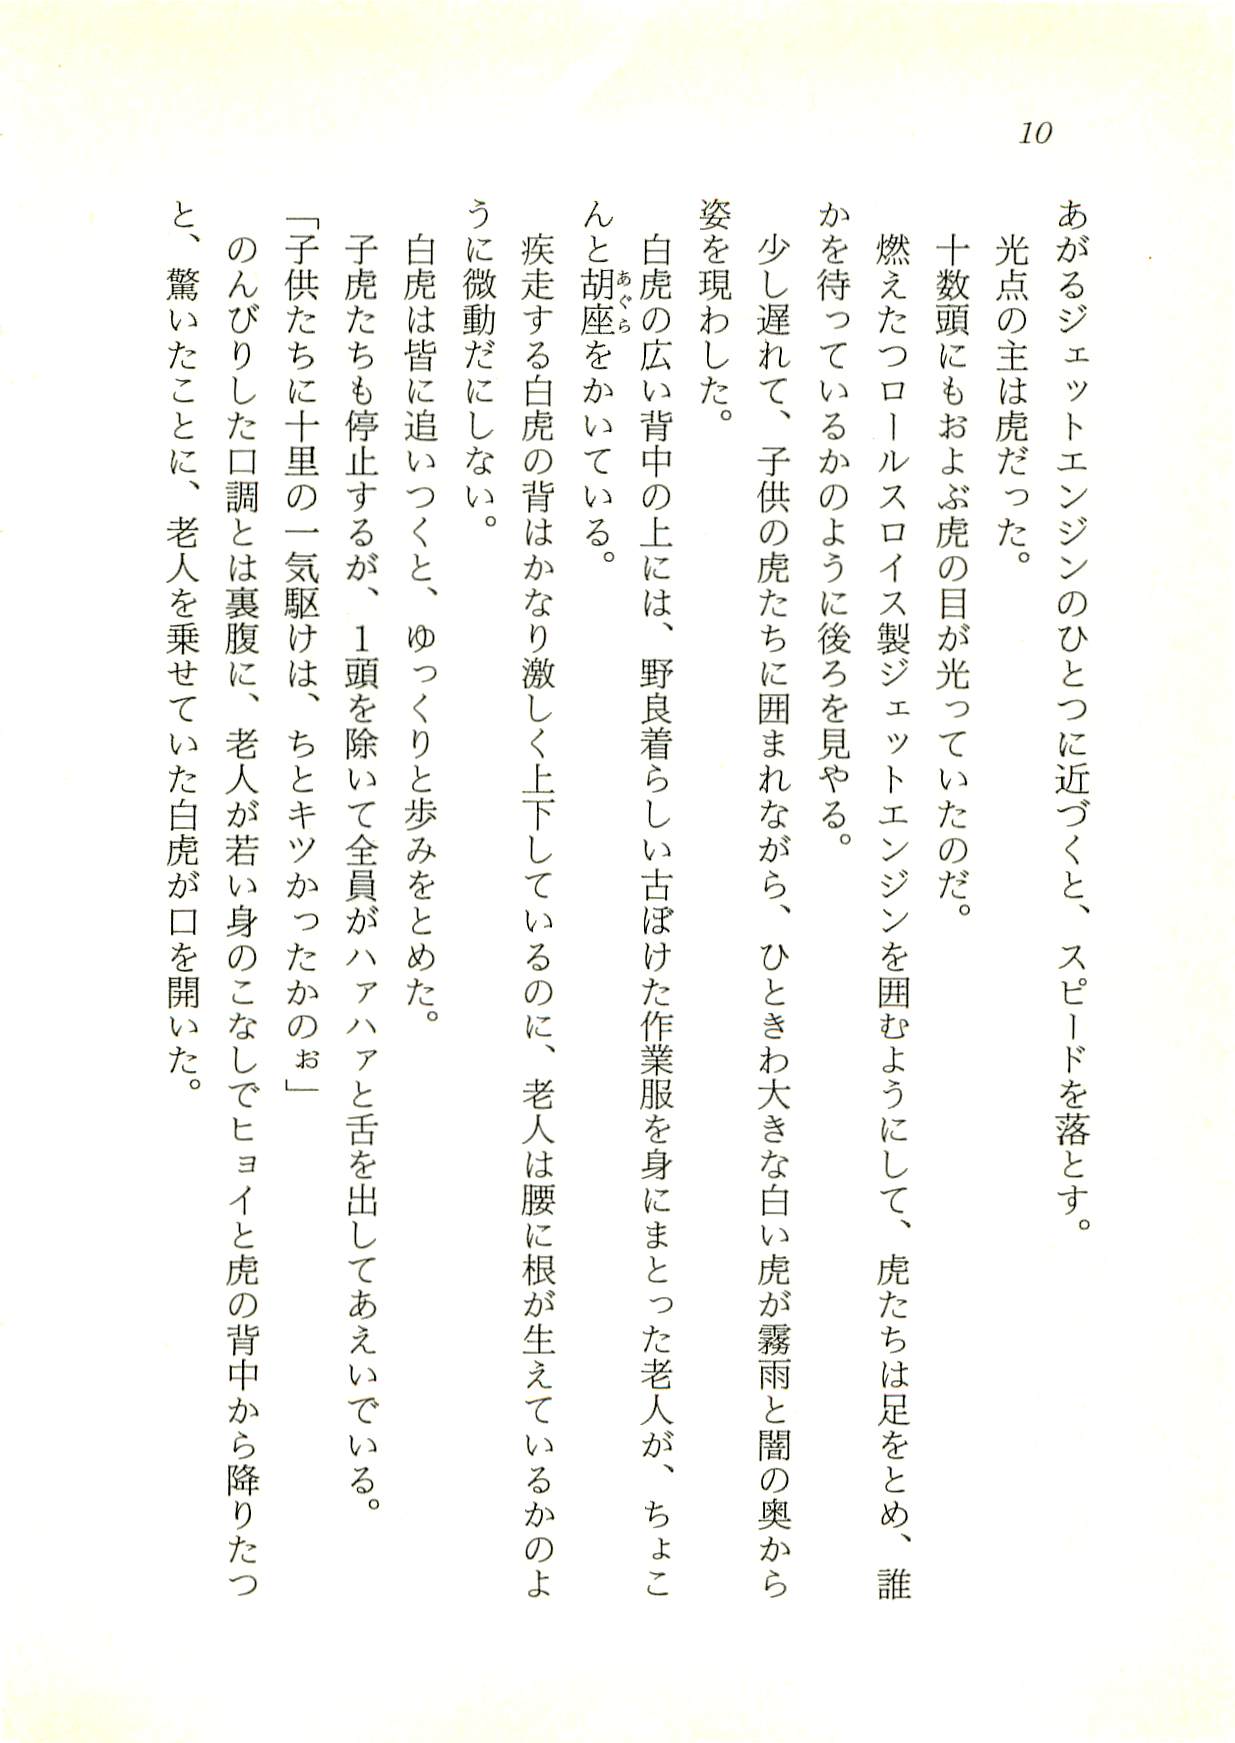 10
あがるジェットエンジンのひとつに近づくと、スピードを落とす。
光点の主は虎だった。
十数頭にもおよぶ虎の目が光っていたのだ。
燃えたつロールスロイス製ジェットエンジンを囲むようにして、虎たちは足をとめ、誰
かを待っているかのように後ろを見やる。
少し遅れて、子供の虎たちに囲まれながら、ひときわ大きな白い虎が霧雨と闇の奥から
姿を現わした。
白虎の広い背中の上には、野良着らしい古ぼけた作業服を身にまとった老人が、ちょこ
んと胡座あぐらをかいている。
疾走する白虎の背はかなり激しく上下しているのに、老人は腰に根が生えているかのよ
うに微動だにしない。
白虎は皆に追いつくと、ゆっくりと歩みをとめた。
子虎たちも停止するが、1頭を除いて全員がハァハァと舌を出してあえいでいる。
「子供たちに十里の一気駆けは、ちとキツかったかのぉ」
のんびりした口調とは裏腹に、老人が若い身のこなしでヒョイと虎の背中から降りたつ
と、驚いたことに、老人を乗せていた白虎が口を開いた。